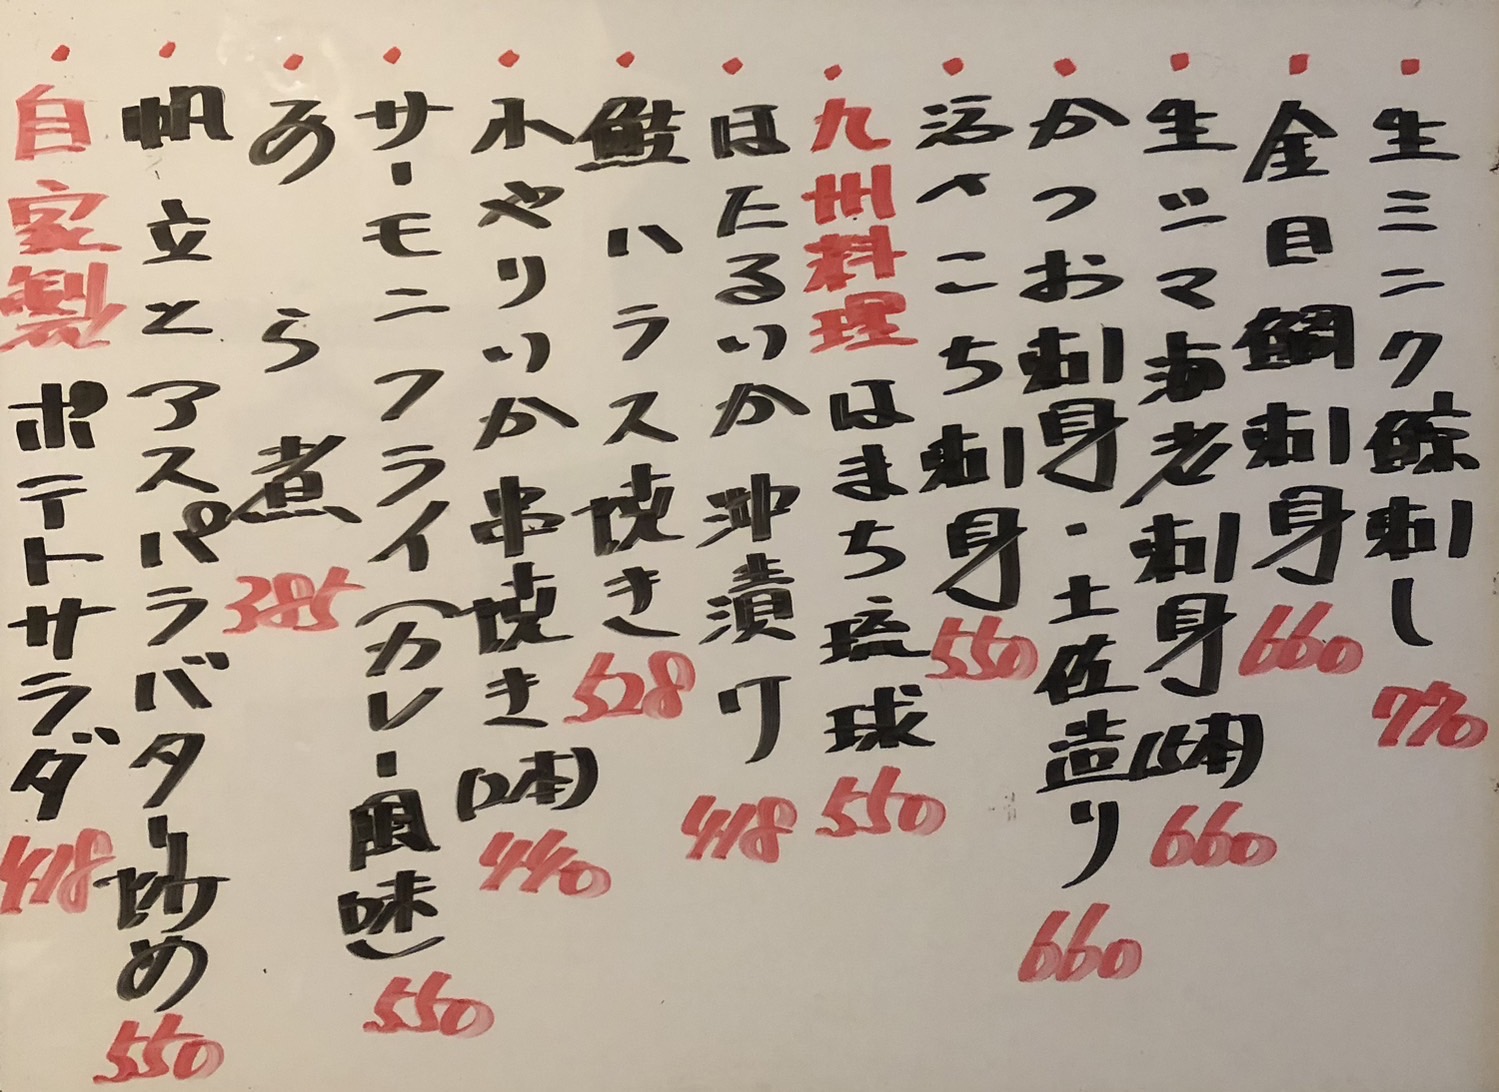 ・生ミニク鯨刺し 770
・金目鯛刺身 660
・生シマ海老刺身(5本) 660
・かつお刺身・土佐造り 660
・活〆こち刺身 550
・九州料理 はまち琉球 550
・ほたるいか沖漬け 418
・鮭ハラス焼き 528
・小やりいか串焼き(2本) 440
・サーモンフライ(カレー風味) 550
・あら煮 385
・帆立とアスパラバター炒め 550
・自家製 ポテトサラダ 418